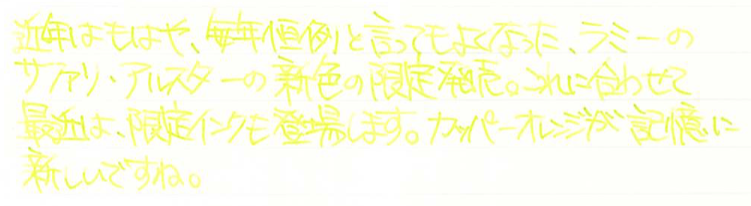 近年はもはや、毎年恒例と言ってもよくなった、ラミーの
サファリ・アルスターの新色の限定発売。これに合わせて
最近は、限定インクも登場します。カッパーオレンジが記憶に
新しいですね。